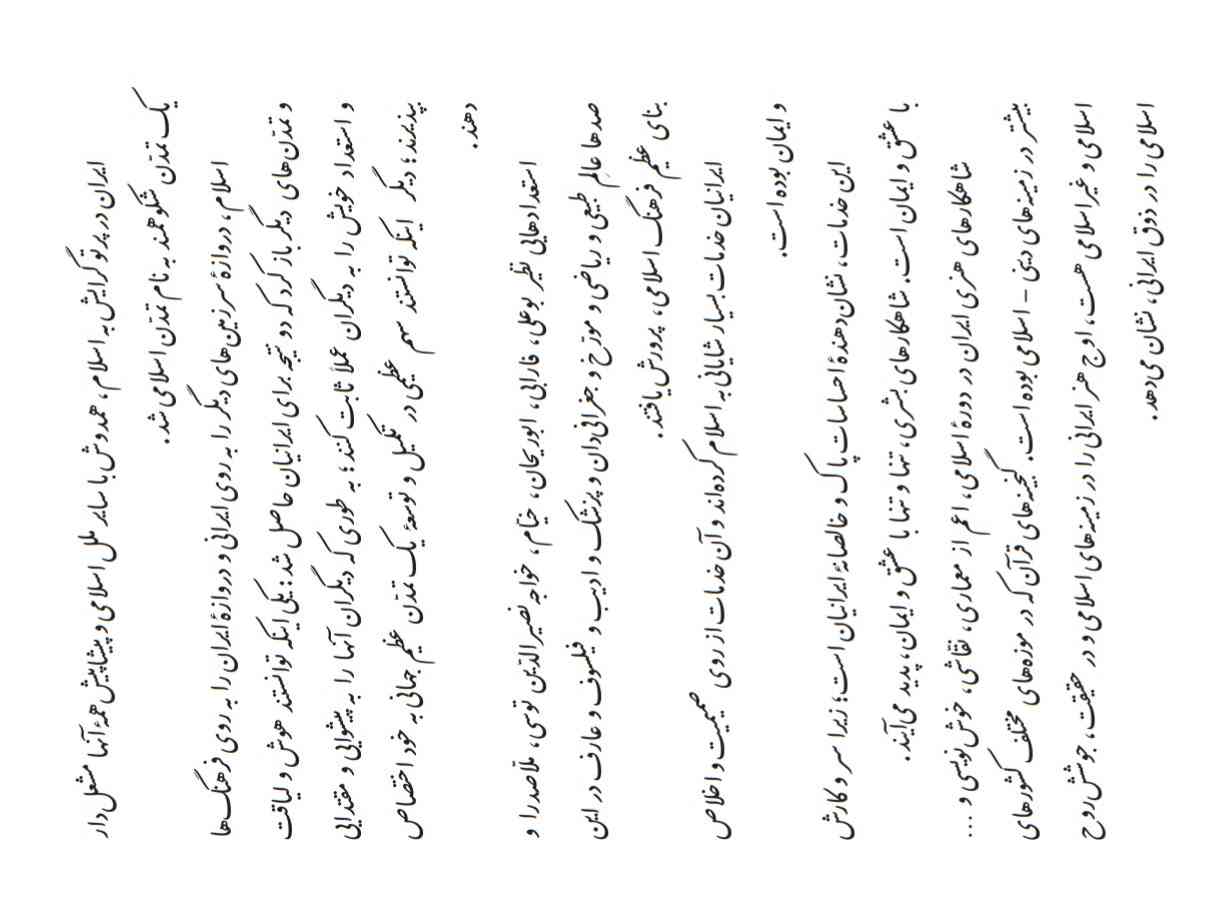 ایران در پرتو گرایش به اسلام، همدوش با سایر ملل اسلامی و پیشاپیش همهٔ آنها مشعل‌دار
یک تمدّن شکوهمند به نام تمدّن اسلامی شد.
اسلام، دروازهٔ سرزمین‌های دیگر را به روی ایرانی و دروازهٔ ایران را به روی فرهنگ‌ها
و تمدّن‌های دیگر باز کرد که دو نتیجه برای ایرانیان حاصل شد: یکی اینکه توانستند هوش و لیاقت
و استعداد خویش را به دیگران عملاً ثابت کنند؛ به طوری که دیگران آنها را به پیشوایی و مقتدایی
پذیرند؛ دیگر اینکه توانستند سهم عظیمی در تکمیل و توسعهٔ یک تمدّن عظیم جهانی به خود اختصاص
دهند.
استعدادهایی نظیر بوعلی، فارابی، ابوریحان، خیّام، خواجه نصیرالدّین توسی، ملّاصدرا و
صدها عالِم طبیعی و ریاضی و مورّخ و جغرافی‌دان و پزشک و ادیب و فیلسوف و عارف در این
بنای عظیم فرهنگ اسلامی، پرورش یافتند.
ایرانیان خدمات بسیار شایانی به اسلام کرده‌اند و آن خدمات از روی صمیمیت و اخلاص
و ایمان بوده است.
این خدمات، نشان‌دهندهٔ احساسات پاک و خالصانهٔ ایرانیان است؛ زیرا سر و کارش
با عشق و ایمان است. شاهکارهای بشری، تنها و تنها با عشق و ایمان، پدید می‌آیند.
شاهکارهای هنری ایران در دورهٔ اسلامی، اعم از معماری، نقّاشی، خوش‌نویسی و ...
بیشتر در زمینه‌های دینی – اسلامی بوده است. گنجینه‌های قرآن که در موزه‌های مختلف کشورهای
اسلامی و غیراسلامی هست، اوج هنر ایرانی را در زمینه‌های اسلامی و در حقیقت، جوشش روح
اسلامی را در ذوق ایرانی، نشان می‌دهد.